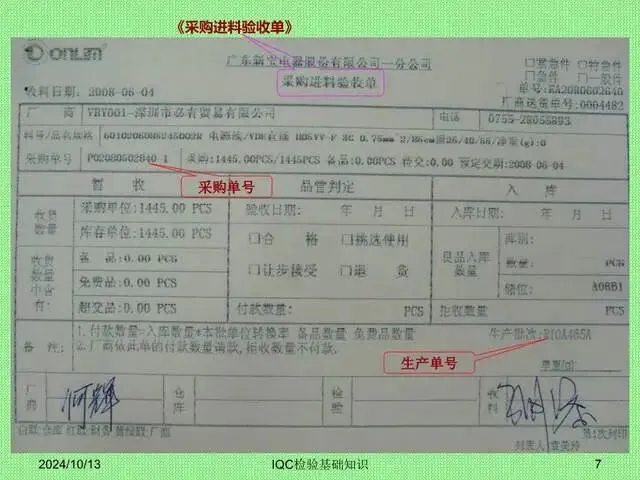 《采购进料验收单》
ONLIM
广东新宝电器股份有限公司一分公司
采购进料验收单
□紧急件 □特急件
□急件 □一般件
收料日期: 2008-06-04
单号:
厂商送货单号:0004482
厂 商 VBY001-深圳市必有贸易有限公司 电话 0755-28055893
料号/品名规格
采购单号 PO2080502840-1 采购:1445.00PCS/1445PCS 备品:0.00PCS 待交:0.00 预定交期:2008-06-04
采购单号
暂 收 品管判定 入 库
收货数量 采购单位:1445.00 PCS 验收日期: 年 月 日 入库日期: 年 月 日
库存单位:1445.00 PCS □合 格 □挑选使用 良品入库数量 库别:
收货数量中含有: 备 品:0.00 PCS □让步接受 □退 货 数量: PCS
免费品:0.00 PCS 储位: A08B1
超交品:0.00 PCS 付款数量: PCS 拒收数量 PCS
备 注: 1.付款数量=入库数量*本批单位转换率 备品数量 免费品数量 生产批次:
2.厂商依此单的付款数量请款,拒收数量不付款.
生产单号
厂商 仓库 检验 收料
第1次列印
2024/10/13 IQC检验基础知识 7